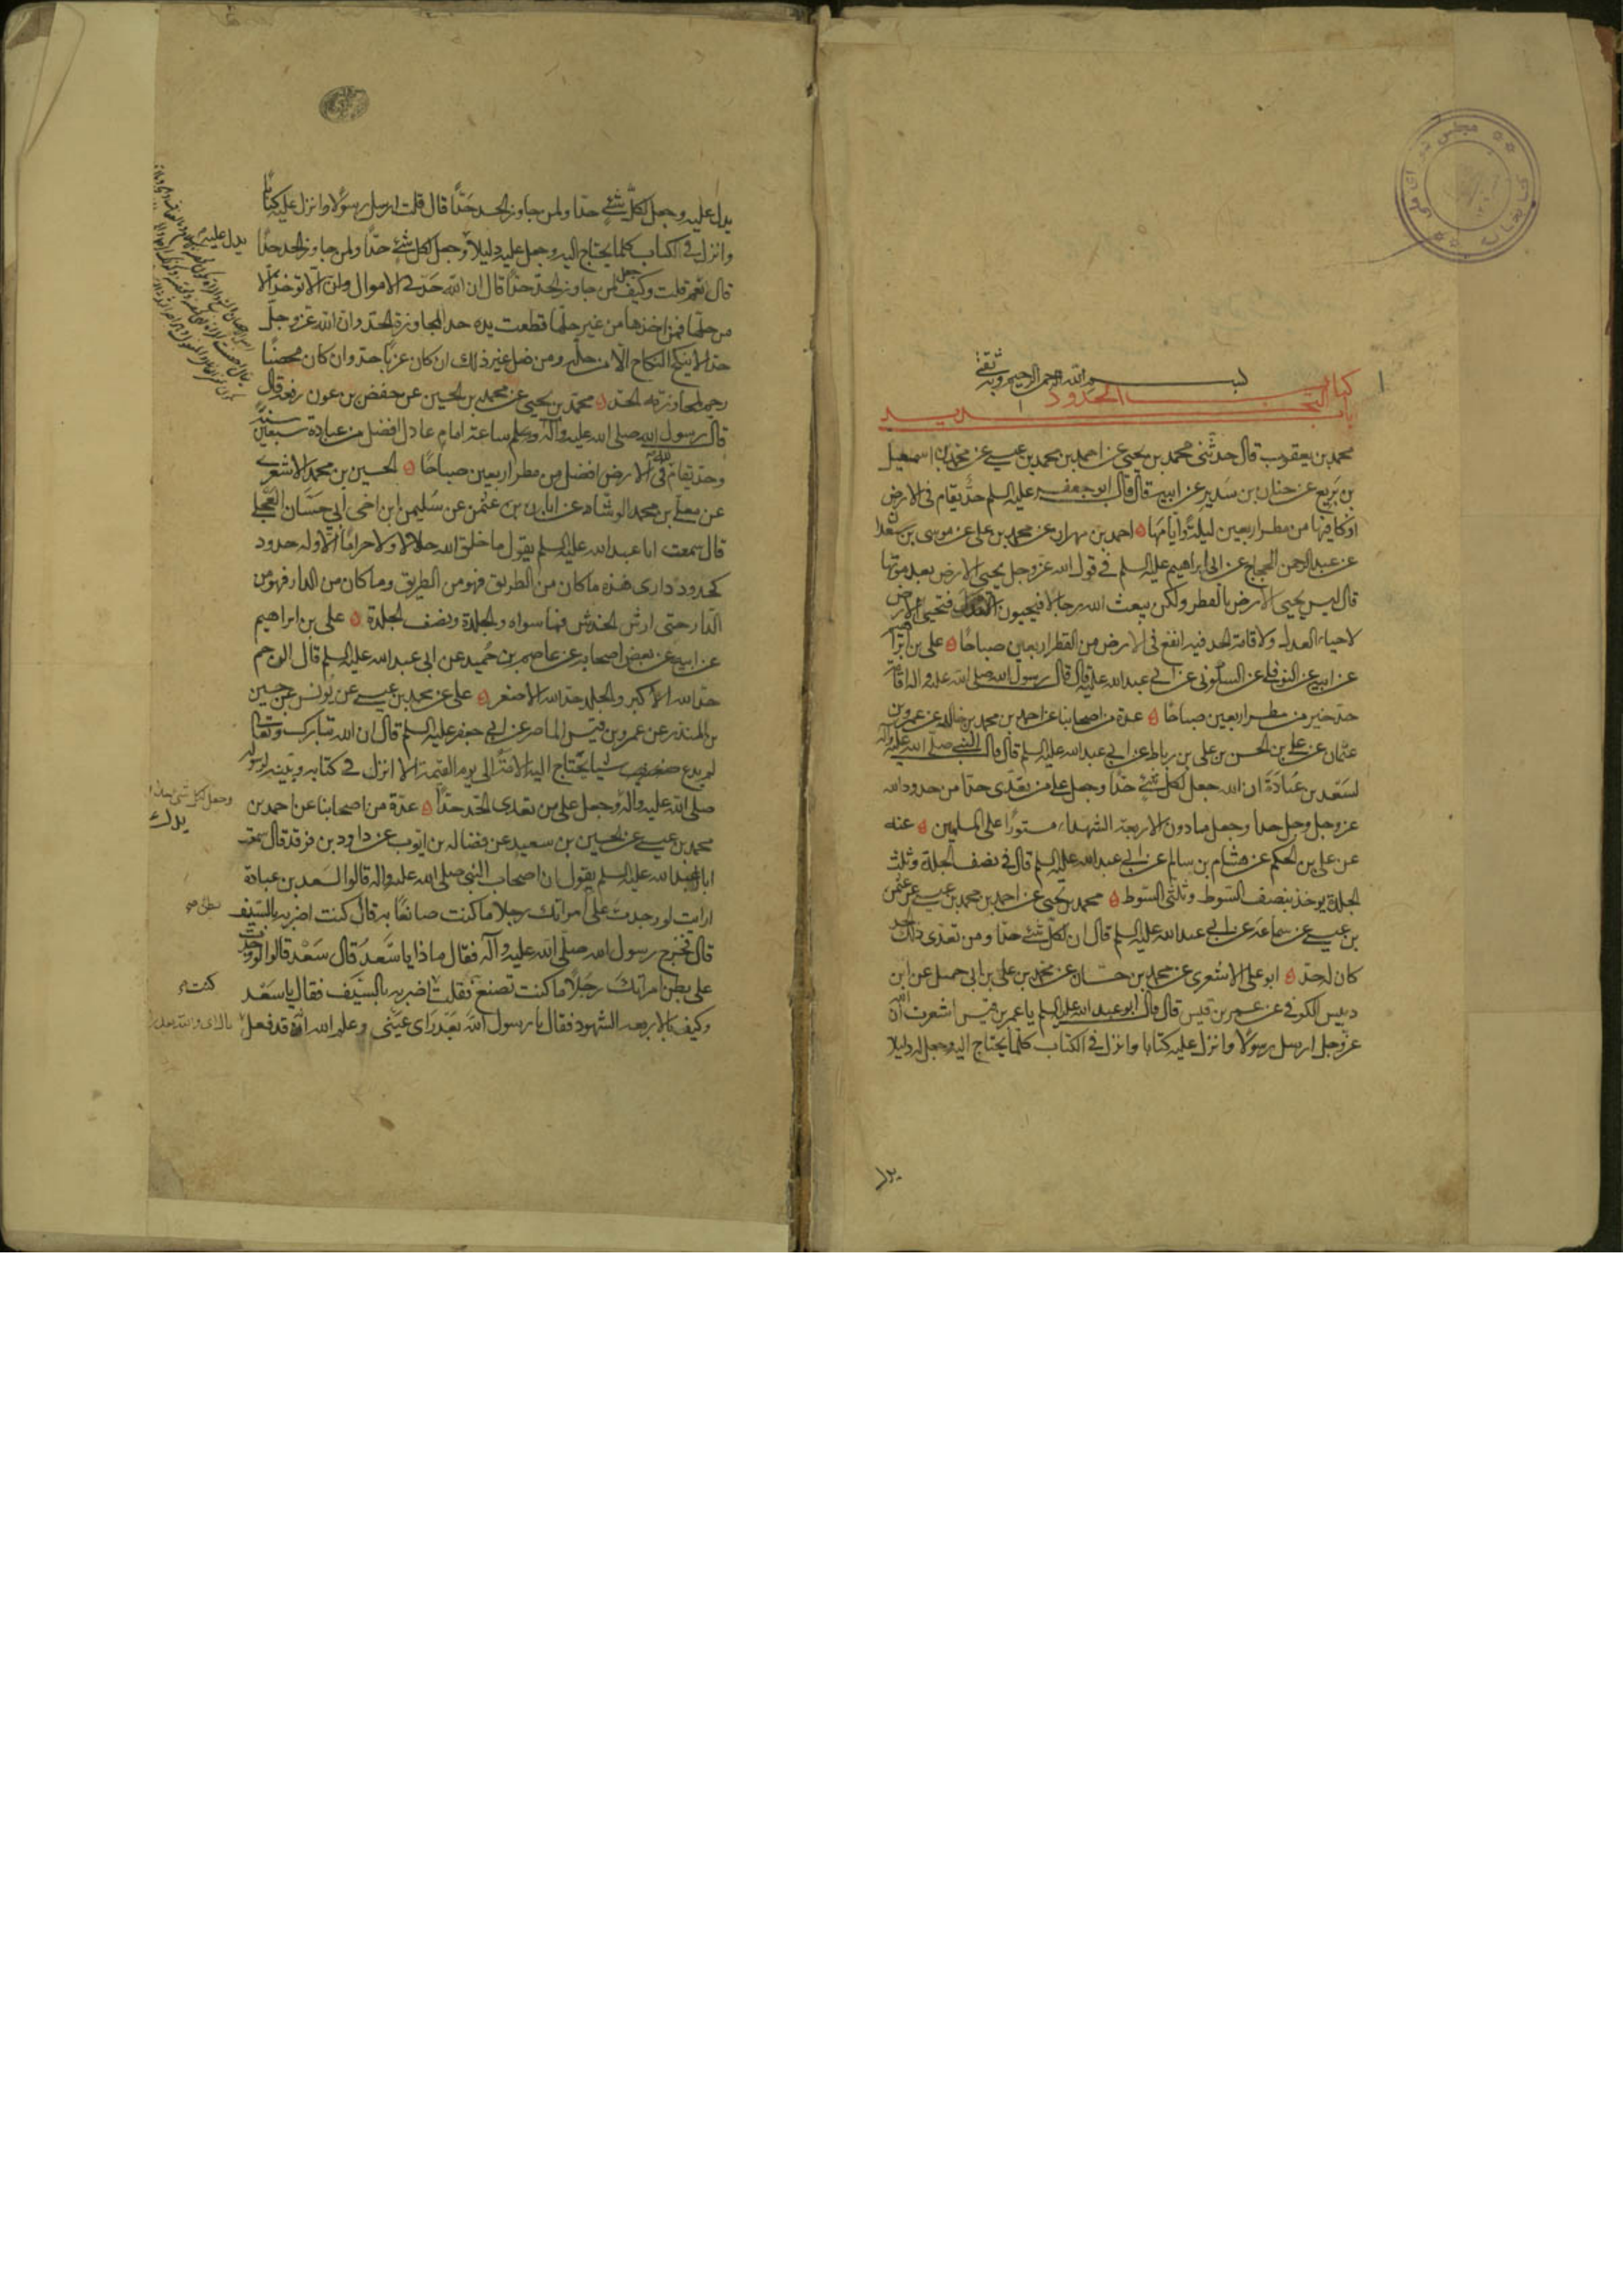 بسم الله الرحمن الرحيم وبه ثقتي
كتاب الحدود
باب التحديد
محمد بن يعقوب قال حدثني محمد بن يحيى عن احمد بن محمد بن عيسى عن محمد بن اسمعيل
بن بزيع عن حنان بن سدير عن ابيه قال قال ابو جعفر عليه السلم حدّ يقام في الارض
ازكا فيها من مطر اربعين ليلة وايامها احمد بن مهران عن محمد بن علي عن موسى بن سعدان
عن عبد الرحمن الحجاج عن ابي ابراهيم عليه السلم في قول الله عز وجل يحيي الارض بعد موتها
قال ليس يحيي الارض بالقطر ولكن يبعث الله رجالا فيحيون العدل فتحيى الارض
لاحياء العدل ولاقامة الحد فيه انفع في الارض من القطر اربعين صباحًا علي بن ابراهيم
عن ابيه عن النوفلي عن السكوني عن ابي عبد الله عليه قال قال رسول الله صلى الله عليه واله اقامة
حد خير من مطر اربعين صباحًا عدة من اصحابنا عن احمد بن محمد بن خالد عن عمرو بن
عثمان عن علي بن الحسن بن علي بن رباط عن ابي عبد الله عليه السلم قال قال النبي صلى الله عليه واله
لسعد بن عبادة ان الله جعل لكل شيء حدًا وجعل على من تعدّى حدا من حدود الله
عز وجل وجل حدا وجعل مادون الاربعة الشهداء مستورًا على المسلمين عنه
عن علي بن الحكم عن هشام بن سالم عن ابي عبد الله عليه السلم قال في نصف الجلدة وثلث
الجلدة يوخذ بنصف السوط وثلثي السوط محمد بن يحيى عن احمد بن محمد بن عيسى عن عثمن
بن عيسى عن سماعة عن ابي عبد الله عليه السلم قال ان لكل شيء حدّا ومن تعدى ذلك الحد
كان له حدّ ابو علي الاشعري عن محمد بن حسّان عن محمد بن علي بن ابي جميل عن ابن
دبيس الكوفي عن عمر بن قيس قال قال ابو عبد الله عليه السلم يا عمر بن قيس اشعرت ان الله
عز وجل ارسل رسولًا وانزل عليه كتابا وانزل في الكتاب كلما يحتاج اليه وجعل له دليلا
يدل
يدل عليه وجعل لكلّ شيءٍ حدّا ولمن جاوز الحد حَدًّا قال قلت ارسل رسولًا وانزل عليه كتابًا
وانزل في الكتاب كلما يحتاج اليه وجعل عليه دليلًا وجعل لكل شيء حدًّا ولمن جاوز الحد حدًا
قال نعم قلت وكيف جعل لمن جاوز الحدّ حدًّا قال ان الله حَدّ في الاموال ان لا توخذ الّا
من حلّها فمن اخذها من غير حلّها قطعت يده حد المجاوزة الحدّ وان الله عز وجلّ
حد الا ينكح النكاح الّا من حلّه ومن فعل غير ذلك ان كان عزبًا حدّ وان كان محصنًا
رجم لمجاوزته الحدّ محمّد بن يحيى عن محمد بن الحسين عن حفص بن عون رفعه قال
قال رسول الله صلى الله عليه وآله وسلم ساعة امامٍ عادل افضل من عبادة سبعين سنة
وحدّ يقام لله في الارض افضل من مطر اربعين صباحًا الحسين بن محمد الاشعري
عن معلّى بن محمد الوشّاء عن ابان بن عثمن عن سليمن ابن اخي أبي حسّان العجلي
قال سمعت ابا عبد الله عليه السلم يقول ما خلق الله حلالا ولا حرامًا الّا وله حدود
كحدود داري هذه ما كان من الطريق فهو من الطريق وما كان من الدار فهو من
الدّار حتى ارش الخدش فما سواه والجلدة ونصف الجلدة علي بن ابراهيم
عن ابيه عن بعض اصحابه عن عاصم بن حُميد عن ابي عبد الله عليه السلم قال الرجم
حد الله الاكبر والجلد حد الله الاصغر علي عن محمد بن عيسى عن يونس عن حسين
بن المنذر عن عمرو بن قيس الماصر عن ابي جعفر عليه السلم قال ان الله تبارك وتعالى
لم يدع شيئا يحتاج اليه الامّة الى يوم القيمة الا انزل في كتابه وبيّنه لرسوله
صلى الله عليه واله وجعل على من تعدى الحدّ حدًّا عدّة من اصحابنا عن احمد بن
محمد بن عيسى عن الحسين بن سعيد عن فضاله بن ايوب عن داود بن فرقد قال سمعت
ابا عبد الله عليه السلم يقول ان اصحاب النبي صلى الله عليه واله قالوا لسعد بن عبادة
ارايت لو وجدت على امراتك رجلا ما كنت صانعًا به قال كنت اضربه بالسّيف
قال فخرج رسول الله صلّى الله عليه وآله فقال ماذا يا سَعدُ قال سَعْد قالوا لو وجدت
على بطن امراتك رجلًا ما كنت تصنع فقلت اضربه بالسّيف فقال يا سَعْد
وكيف بالاربعة الشهود فقال يا رسول الله بَعد رأي عيني وعلم الله انّه قد فعل
يدل عليه